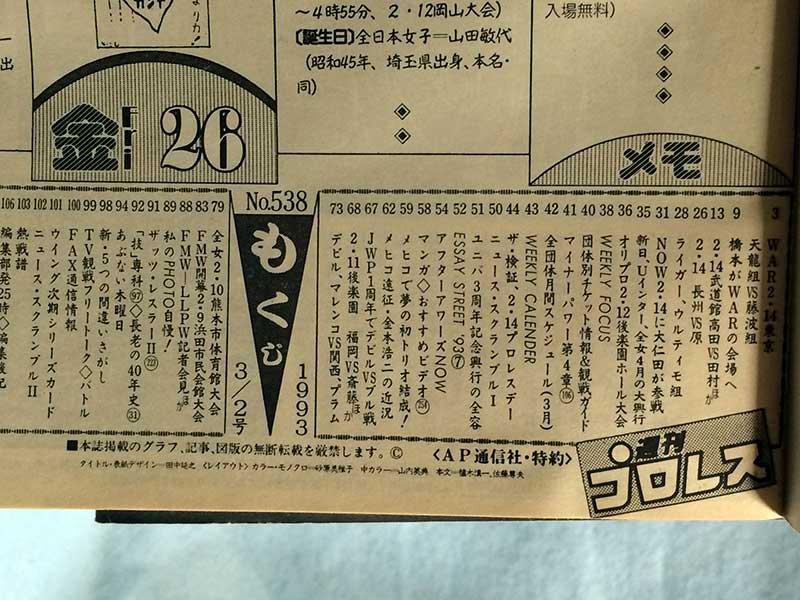 より力!
出
~4時55分、2・12岡山大会)
〔誕生日〕全日本女子=山田敏代
(昭和45年、埼玉県出身、本名・
同)
入場無料)
金
Fri
26
メモ
3 WAR2・14東京
天龍組VS藤波組
9 橋本がWARの会場へ
13 2・14武道館高田VS田村ほか
26 2・14長州VS原
28 ライガー、ウルティモ組
31 NOW2・14に大仁田が参戦
35 新日、Uインター、全女4月の大興行
36 オリプロ2・12後楽園ホール大会
38 WEEKLY FOCUS
40 団体別チケット情報&観戦ガイド
41 マイナーパワー第4章(106)
42 全団体月間スケジュール(3月)
43 WEEKLY CALENDER
44 ザ・検証、2・14プロレスデー
50 ニュース・スクランブルⅠ
51 ユニバ3周年記念興行の全容
52 ESSAY STREET '93⑦
54 アフターアワーズNOW
58 マンガ◇おすすめビデオ(254)
59 メヒコで夢の初トリオ結成!
62 メヒコ遠征・金本浩二の近況
67 JWP1周年でデビルVSブル戦
68 2・11後楽園 福岡VS斎藤ほか
73 デビル、マレンコVS関西、プラム
No.538
もくじ
1993
3/2号
79 全女2・10熊本市体育館大会
83 FMW開幕2・9浜田市民会館大会
88 FMW―LLPW記者会見ほか
89 私のPHOTO自慢!
91 ザッツ・レスラーⅡ(223)
92 「技」専科(97)◇長老の40年史(31)
94 あぶない木曜日
98 新・5つの間違いさがし
99 TV観戦フリートーク◇バトル
100 FAX通信情報
101 ウイング次期シリーズカード
102 ニュース・スクランブルⅡ
103 熱戦譜
106 編集部発25時◇編集後記
■本誌掲載のグラフ、記事、図版の無断転載を厳禁します。Ⓒ 〈AP通信社・特約〉
週刊
プロレス